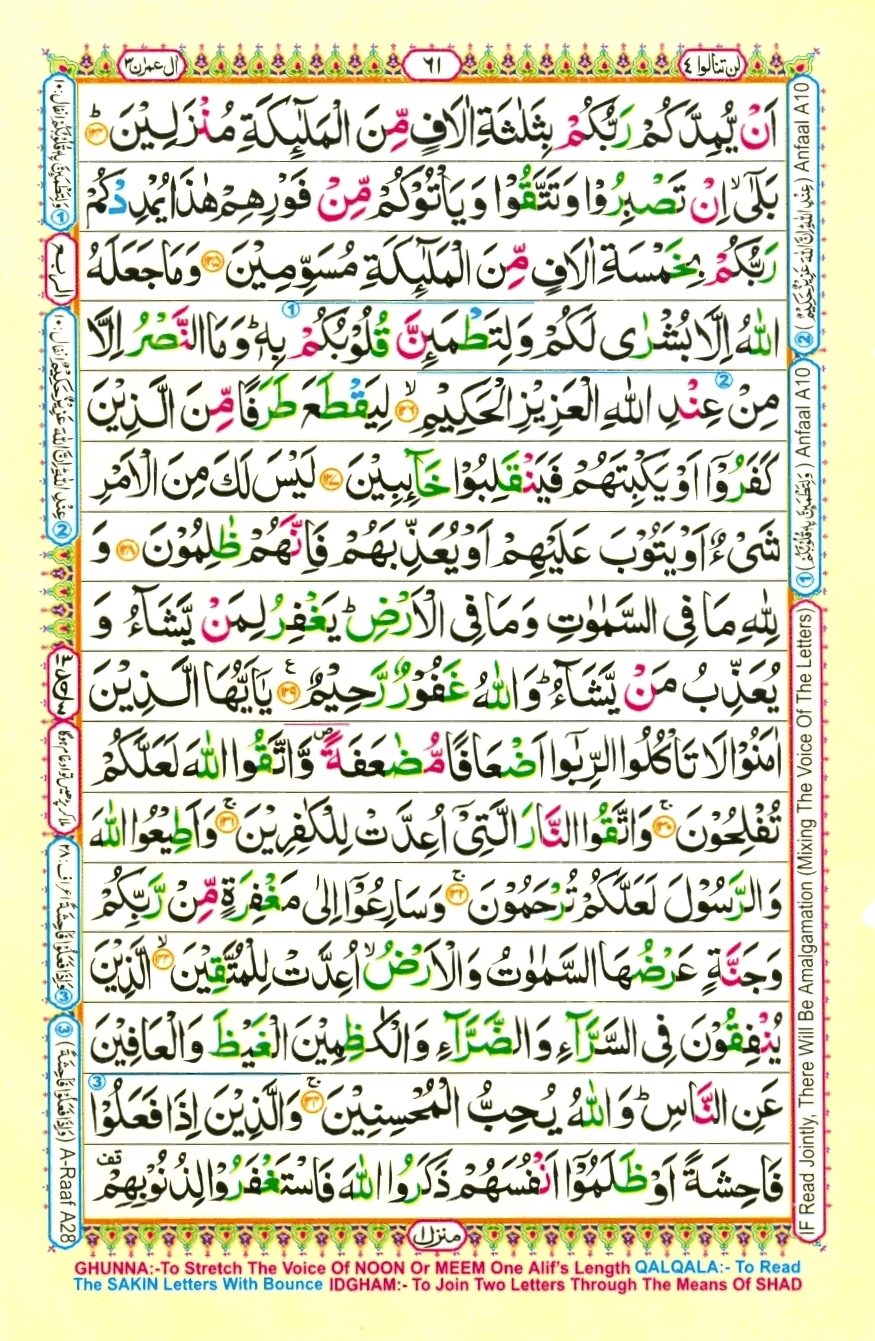 لن تنالوا ٤
٦١
ال عمرٰن ٣
اَنْ يُّمِدَّكُمْ رَبُّكُمْ بِثَلٰثَةِ اٰلَافٍ مِّنَ الْمَلٰٓئِكَةِ مُنْزَلِيْنَ ؕ۝۱۲۴
بَلٰۤى ۙ اِنْ تَصْبِرُوْا وَتَتَّقُوْا وَيَاْتُوْكُمْ مِّنْ فَوْرِهِمْ هٰذَا يُمْدِدْكُمْ
رَبُّكُمْ بِخَمْسَةِ اٰلَافٍ مِّنَ الْمَلٰٓئِكَةِ مُسَوِّمِيْنَ ۝۱۲۵ وَمَا جَعَلَهُ
اللّٰهُ اِلَّا بُشْرٰى لَكُمْ وَلِتَطْمَئِنَّ قُلُوْبُكُمْ بِهٖ ؕ وَمَا النَّصْرُ اِلَّا
مِنْ عِنْدِ اللّٰهِ الْعَزِيْزِ الْحَكِيْمِ ۙ۝۱۲۶ لِيَقْطَعَ طَرَفًا مِّنَ الَّذِيْنَ
كَفَرُوْۤا اَوْ يَكْبِتَهُمْ فَيَنْقَلِبُوْا خَآئِبِيْنَ ۝۱۲۷ لَيْسَ لَكَ مِنَ الْاَمْرِ
شَىْءٌ اَوْ يَتُوْبَ عَلَيْهِمْ اَوْ يُعَذِّبَهُمْ فَاِنَّهُمْ ظٰلِمُوْنَ ۝۱۲۸ وَ
لِلّٰهِ مَا فِى السَّمٰوٰتِ وَمَا فِى الْاَرْضِ ؕ يَغْفِرُ لِمَنْ يَّشَآءُ وَ
يُعَذِّبُ مَنْ يَّشَآءُ ؕ وَاللّٰهُ غَفُوْرٌ رَّحِيْمٌ ۝۱۲۹ يٰۤاَيُّهَا الَّذِيْنَ
اٰمَنُوْا لَا تَاْكُلُوا الرِّبٰٓوا اَضْعَافًا مُّضٰعَفَةً ۪ وَّاتَّقُوا اللّٰهَ لَعَلَّكُمْ
تُفْلِحُوْنَ ۚ۝۱۳۰ وَاتَّقُوا النَّارَ الَّتِىْۤ اُعِدَّتْ لِلْكٰفِرِيْنَ ۚ۝۱۳۱ وَاَطِيْعُوا اللّٰهَ
وَالرَّسُوْلَ لَعَلَّكُمْ تُرْحَمُوْنَ ۚ۝۱۳۲ وَسَارِعُوْۤا اِلٰى مَغْفِرَةٍ مِّنْ رَّبِّكُمْ
وَجَنَّةٍ عَرْضُهَا السَّمٰوٰتُ وَالْاَرْضُ ۙ اُعِدَّتْ لِلْمُتَّقِيْنَ ۙ۝۱۳۳ الَّذِيْنَ
يُنْفِقُوْنَ فِى السَّرَّآءِ وَالضَّرَّآءِ وَالْكٰظِمِيْنَ الْغَيْظَ وَالْعَافِيْنَ
عَنِ النَّاسِ ؕ وَاللّٰهُ يُحِبُّ الْمُحْسِنِيْنَ ۚ۝۱۳۴ وَالَّذِيْنَ اِذَا فَعَلُوْا
فَاحِشَةً اَوْ ظَلَمُوْۤا اَنْفُسَهُمْ ذَكَرُوا اللّٰهَ فَاسْتَغْفَرُوْا لِذُنُوْبِهِمْ قف
منزل ١
② (عِنْدِ اللّٰهِ اِنَّ اللّٰهَ عَزِيْزٌ حَكِيْمٌ) Anfaal A10
① (وَلِتَطْمَئِنَّ بِهٖ قُلُوْبُكُمْ) Anfaal A10
IF Read Jointly, There Will Be Amalgamation (Mixing The Voice Of The Letters)
① وَلِتَطْمَئِنَّ بِهٖ قُلُوْبُكُمْ انفال: ١٠
② عِنْدِ اللّٰهِ اِنَّ اللّٰهَ عَزِيْزٌ حَكِيْمٌ انفال: ١٠
ملا کر پڑھیں تو ادغام ہوگا
③ وَاِذَا فَعَلُوْا فَاحِشَةً اعراف: ٢٨
③ (وَاِذَا فَعَلُوْا فَاحِشَةً) A-Raaf A28
GHUNNA:-To Stretch The Voice Of NOON Or MEEM One Alif's Length QALQALA:- To Read
The SAKIN Letters With Bounce IDGHAM:- To Join Two Letters Through The Means Of SHAD